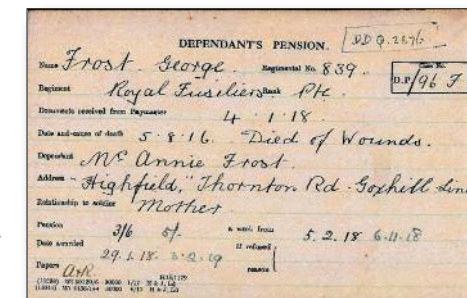 DEPENDANT'S PENSION. DDQ.2676
Name Frost. George. Regimental No. 839.
Regiment Royal Fusiliers Rank Pte. D.P/96 F
Documents received from Paymaster 4.1.18.
Date and cause of death 5.8.16. Died of Wounds.
Dependant Mrs Annie Frost.
Address "Highfield," Thornton Rd. Goxhill Lin
Relationship to soldier Mother
Pension 3/6 5/- a week from 5.2.18 6.11.18
Date awarded 29.1.18. If refused,
Papers reason